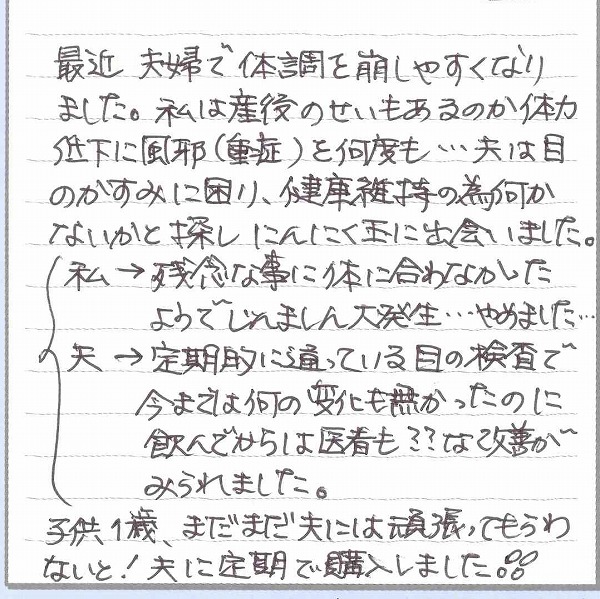 最近 夫婦で体調を崩しやすくなり
ました。私は産後のせいもあるのか体力
低下に風邪(重症)を何度も…夫は目
のかすみに困り、健康維持の為何か
ないかと探しにんにく玉に出会いました。
私→残念な事に体に合わなかした
ようでじんましん大発生…やめました…
夫→定期的に通っている目の検査で
今までは何の変化も無かったのに
飲んでからは医者も??な改善が
みられました。
子供1歳、まだまだ夫には頑張ってもらわ
ないと!夫に定期で購入しました